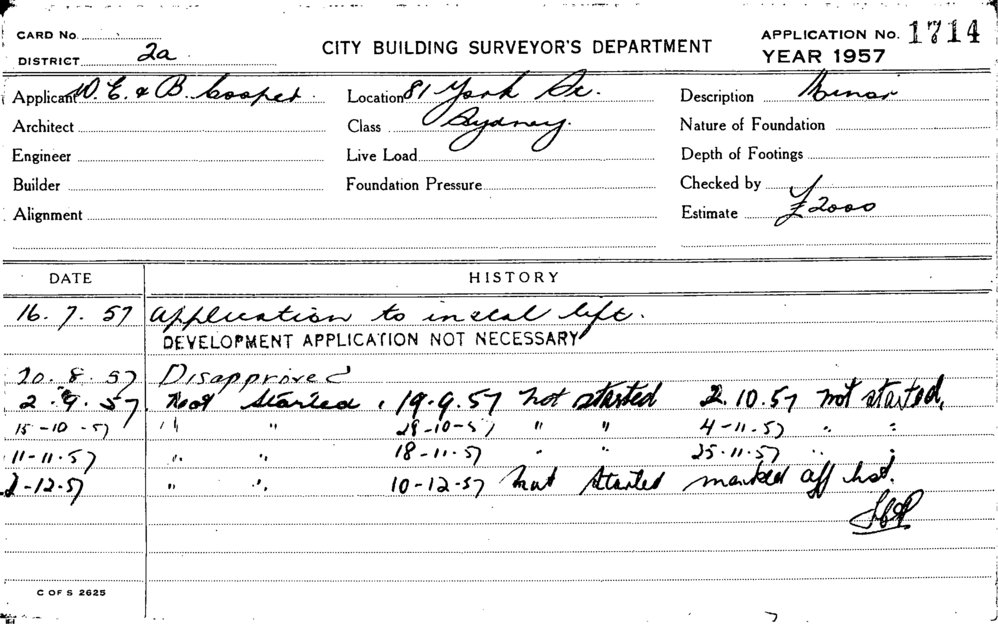 CARD No.
CITY BUILDING SURVEYOR'S DEPARTMENT
APPLICATION No. 1714
DISTRICT 2a
YEAR 1957
Applicant W. E. & B. Cooper. Location 81 York St. Description Minor
Architect Class Sydney. Nature of Foundation
Engineer Live Load Depth of Footings
Builder Foundation Pressure Checked by
Alignment Estimate £2000
DATE HISTORY
16. 7. 57 Application to instal lift.
DEVELOPMENT APPLICATION NOT NECESSARY
20. 8. 57 Disapproved
2. 9. 57 Not Started, 19.9.57 not started 2.10.57 not started,
15-10-57 " " 28-10-57 " " 4-11-57 " "
11-11-57 " " 18-11-57 " " 25.11.57 " "
2-12-57 " " 10-12-57 Not Started marked off list.
C OF S 2625